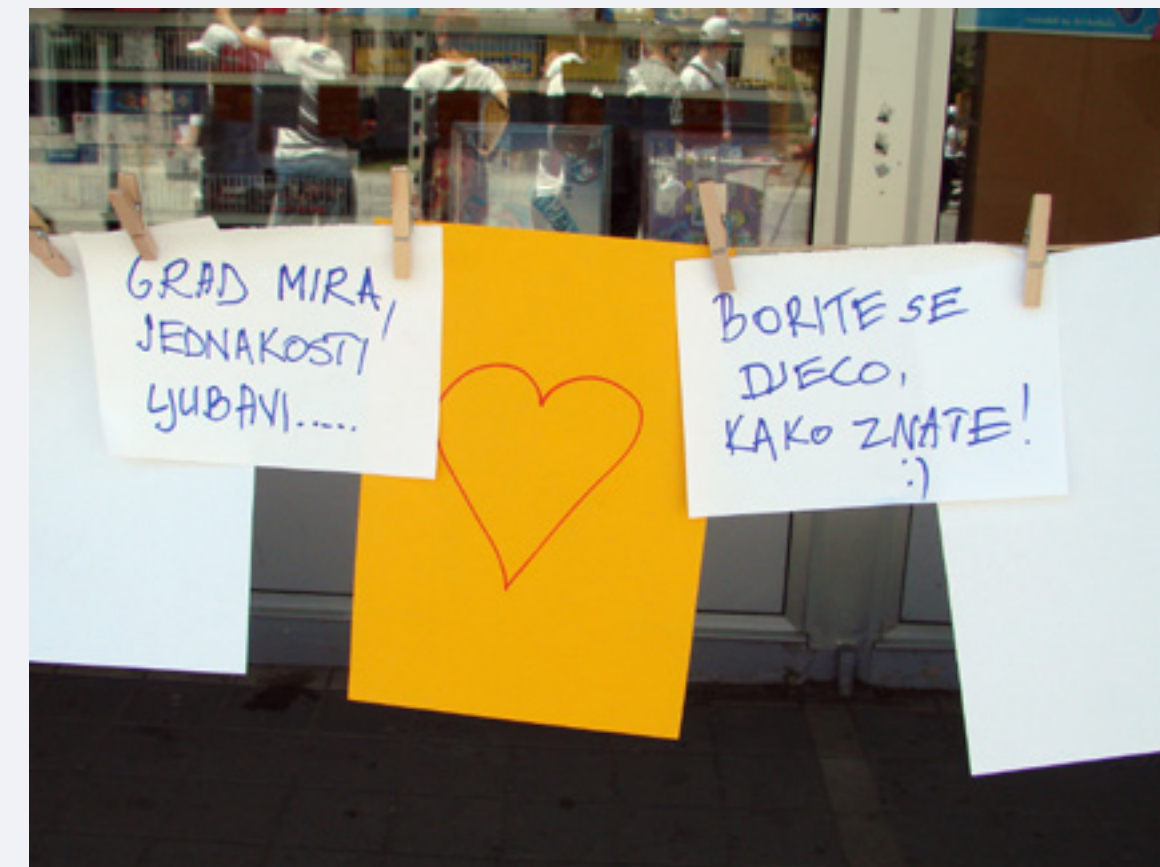 GRAD MIRA,
JEDNAKOSTI,
LJUBAVI.....
BORITE SE
DJECO,
KAKO ZNATE!
:)